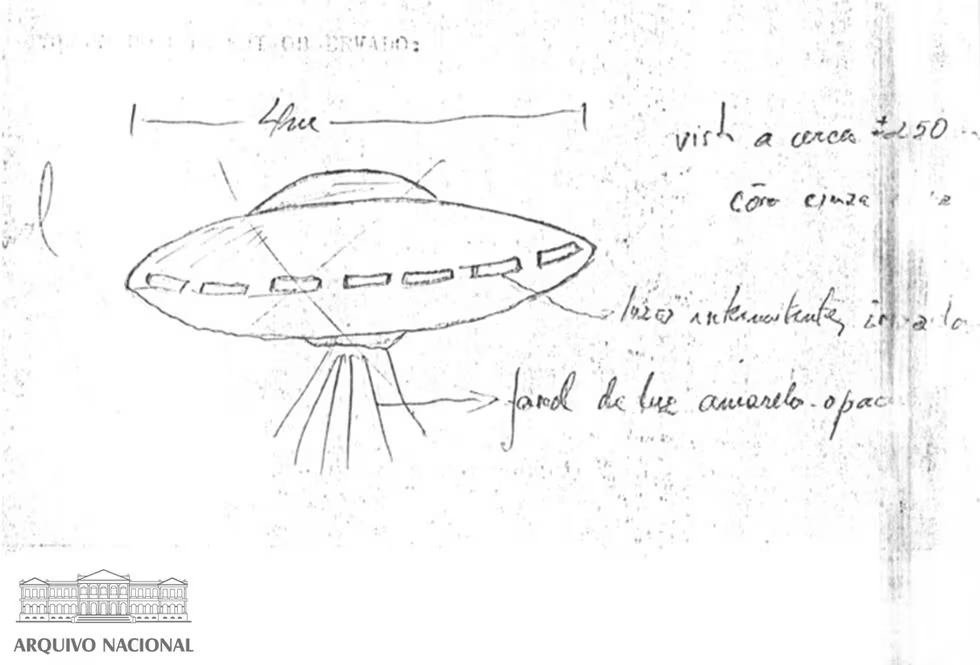 4m
vist a cerca ±250
côro cinza
luzes intermitentes
farol de luz amarelo-opac
ARQUIVO NACIONAL